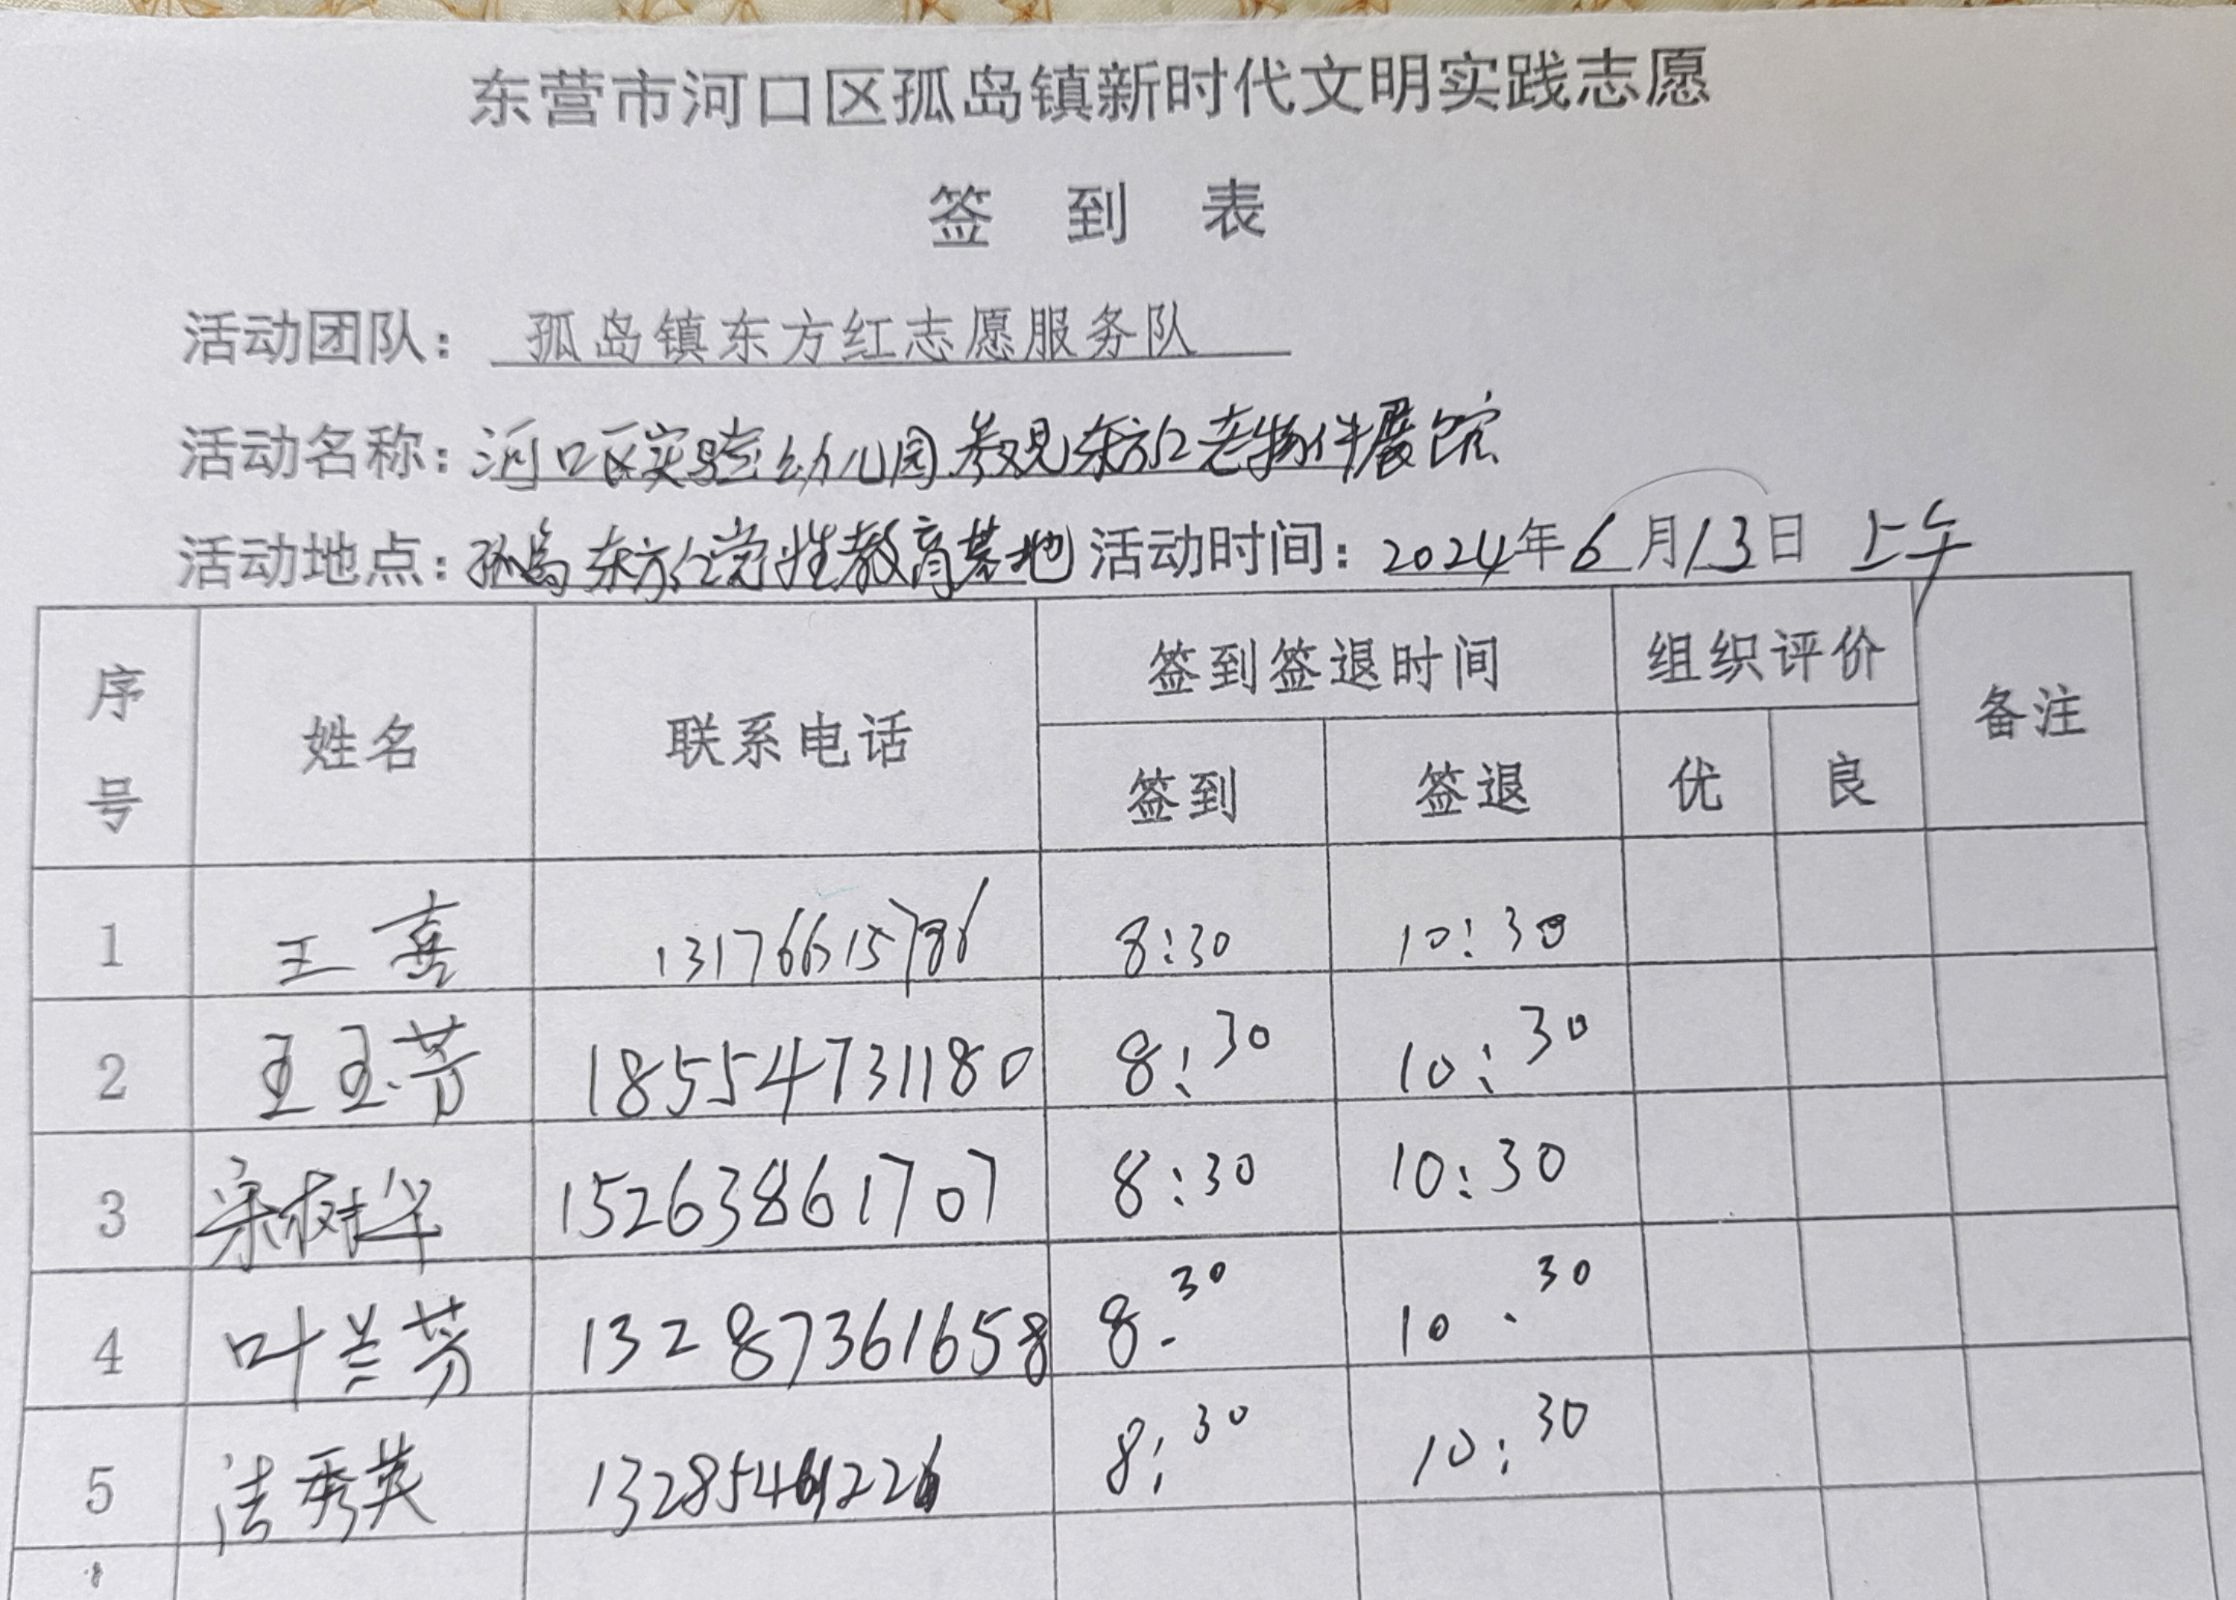 东营市河口区孤岛镇新时代文明实践志愿
签 到 表
活动团队: 孤岛镇东方红志愿服务队
活动名称: 河口区实验幼儿园参观东方红老物件展馆
活动地点: 孤岛东方红党性教育基地 活动时间: 2024年6月13日 上午
序号 姓名 联系电话 签到签退时间 组织评价 备注
签到 签退 优 良
1 王喜 13176615786 8:30 10:30
2 王玉芳 18554731180 8:30 10:30
3 宋树华 15263861707 8:30 10:30
4 叶兰芳 13287361658 8.30 10.30
5 秀英 8:30 10:30